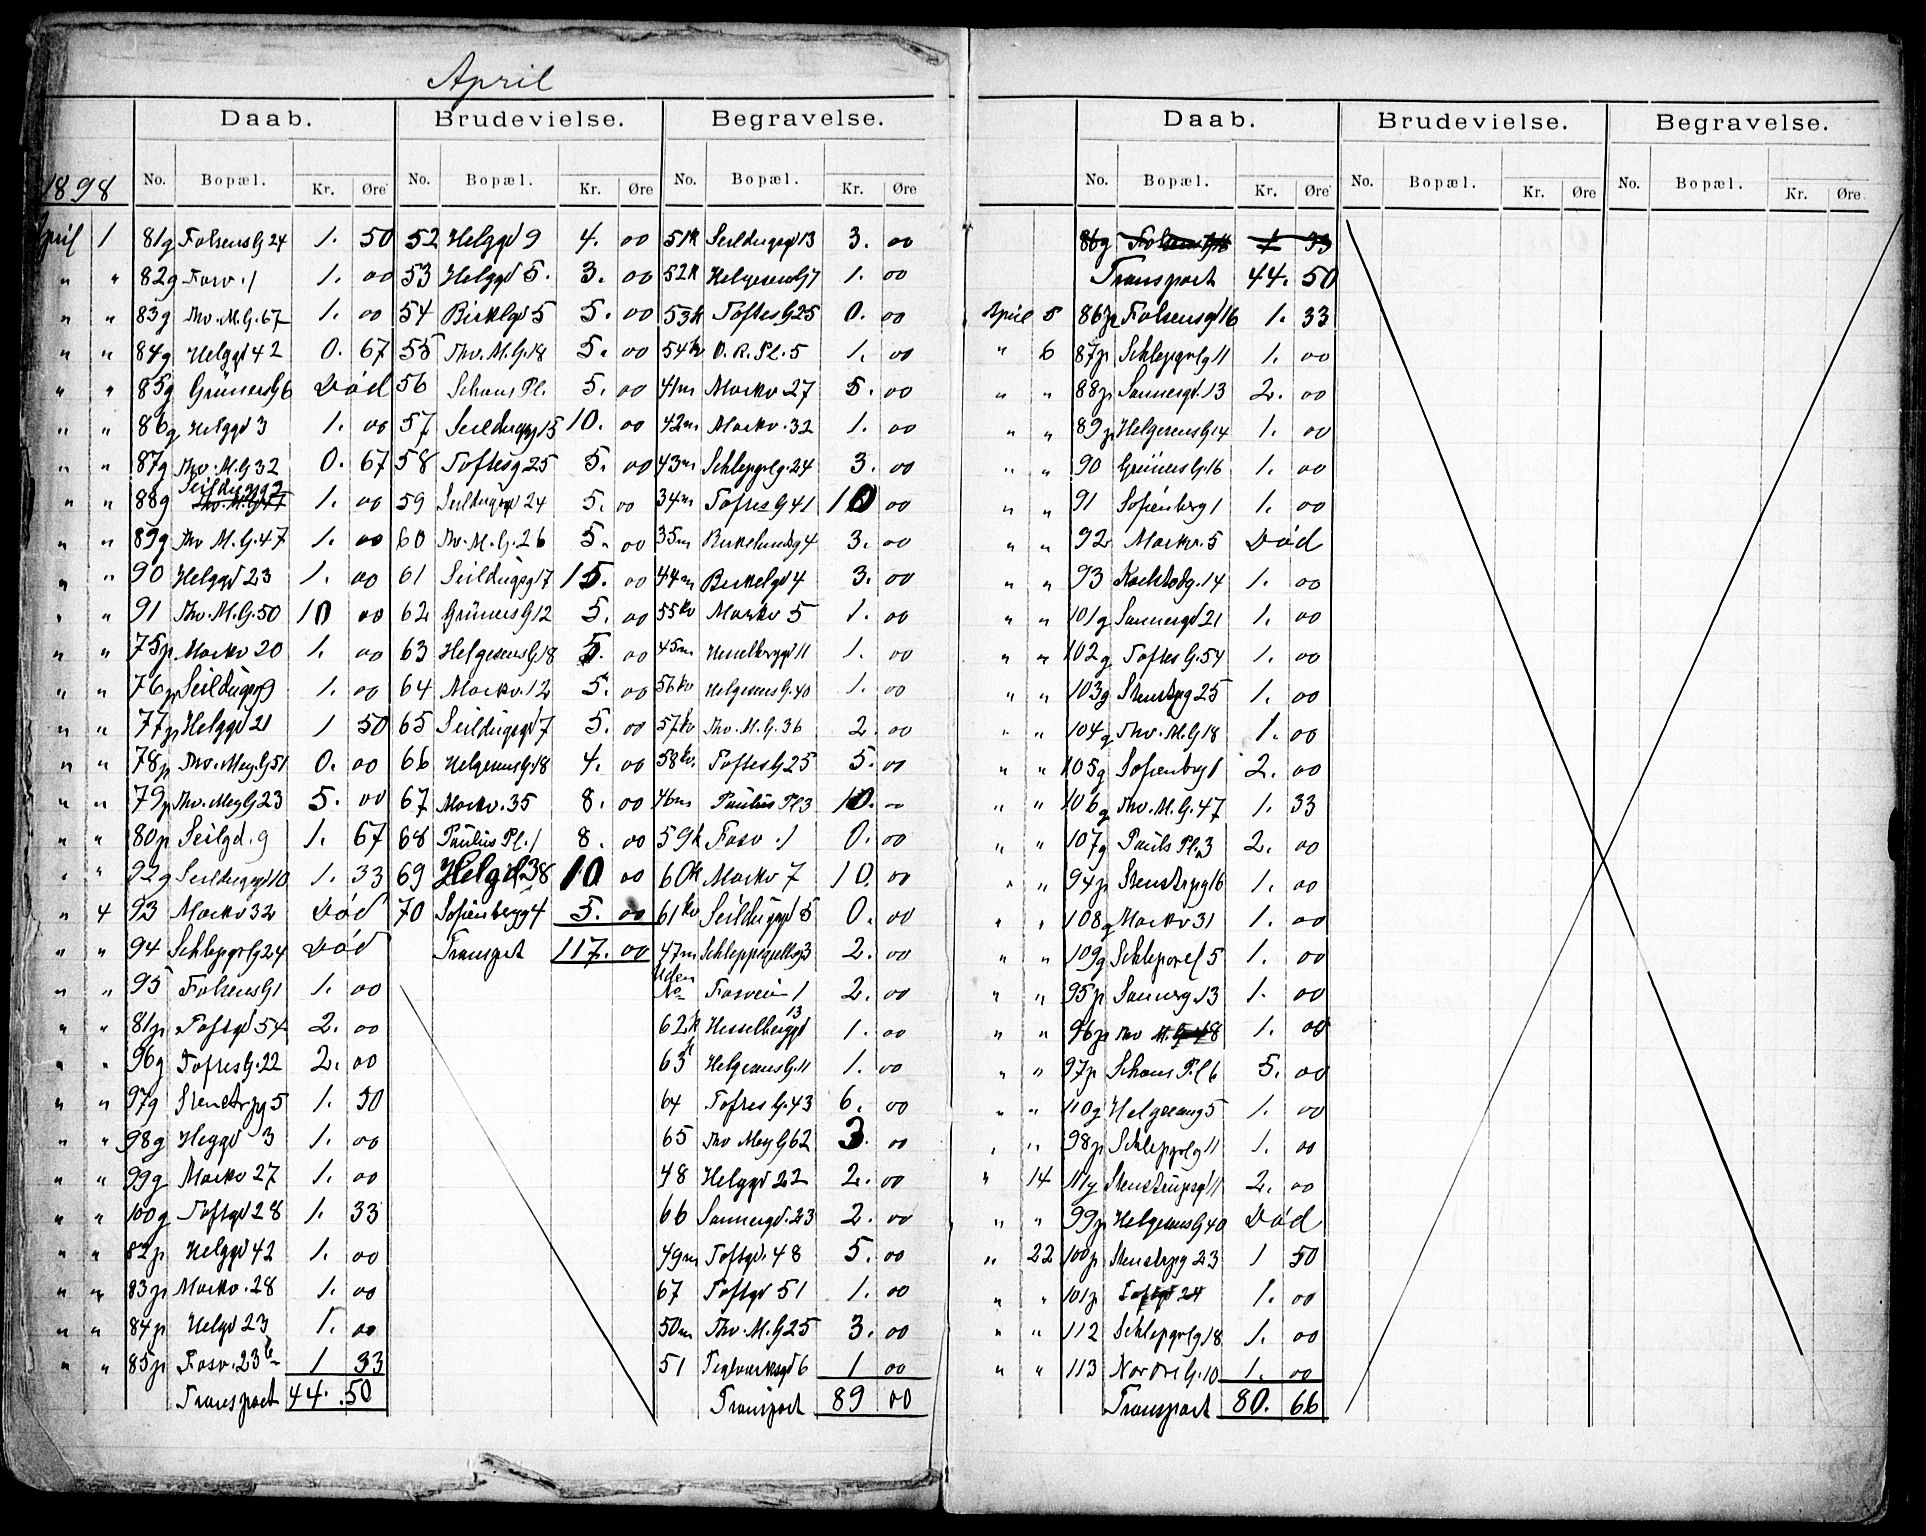 April
Daab. Brudevielse. Begravelse.
1898 No. Bopæl. Kr. Øre No. Bopæl. Kr. Øre No. Bopæl. Kr. Øre
April 1 81g FolsensG 24 1. 50 52 Helggd 9 4. 00 51k Seildugsgd 13 3. 00
" " 82g Fosv. 1 1. 00 53 Helggd 5. 3. 00 52k HelgesensG 7 1. 00
" " 83g Thv. M. G. 67 1. 00 54 Birklgd 5 5. 00 53k ToftesG 25 0. 00
" " 84g Helggd 42 0. 67 55 Thv. M. G. 18 5. 00 54kv O. R. Pl. 5 1. 00
" " 85g GrünersG 6 Död 56 Schous Pl. 5. 00 41m Markv 27 5. 00
" " 86g Helggd 3 1. 00 57 Seildugsg 15 10. 00 42m Markv. 32 1. 00
" " 87g Thv. M. G 32 0. 67 58 Toftesg 25 5. 00 43m Schleppgrlg. 24 3. 00
" " 88g Seildugsg 22 1. 00 59 Seildugsgd 24 5. 00 34m ToftesG 41 10 00
" " 89g Thv M. G. 47 1. 00 60 Thv. M. G. 26 5. 00 35m Birkelundsg 4 3. 00
" " 90 Helggd 23 1. 00 61 Seildugsg 17 15. 00 44m Birkelgd 4 3. 00
" " 91 Thv. M. G. 50 10 00 62 GrünersG 12 5. 00 55kv Markv 5 1. 00
" " 75p Markv 20 1. 00 63 HelgesensG. 18 5. 00 45m Hesselbergd 11 1. 00
" " 76p Seildugsg 9 1. 00 64 Markv. 12 5. 00 56kv HelgesensG. 40 1. 00
" " 77p Helggd 21 1 50 65 Seildugsgd 7 5. 00 57kv Thv. M. G. 36 2. 00
" " 78p Thv. Mey. G 51 0. 00 66 HelgesensG. 18 4. 00 58kv. ToftesG 25 5. 00
" " 79p Thv. Mey G 23 5. 00 67 Markv. 35 8. 00 46m Paulus Pl 3 10. 00
" " 80p Seilgd. 9 1. 67 68 Paulus Pl. 1 8. 00 59k Fosv. 1 0. 00
" " 92g Seildugsgd 10 1. 33 69 Helgd. 38 10 00 60k Markv 7 10. 00
" 4 93 Markv 32 Död 70 Sofienbergg 4 5. 00 61kv Seildugsgd 5 0. 00
" " 94 Schleppgrlg 24 Död Transport 117. 00 47m Schleppegrellsg 3 2. 00
" " 95 FolsensG 1 1. 00 Uden No Fosveien 1 2. 00
" " 81p Toftgd 54 2. 00 62k Hesselberggd 13 1. 00
" " 96g ToftesG. 22 2. 00 63k HelgesensG. 11 1. 00
" " 97g Stenstrpg 5 1. 50 64 ToftesG. 43 6. 00
" " 98g Heggd 3 1. 00 65 Thv Mey G 62 3. 00
" " 99g Markv 27 1. 00 48 Helggd 22 2. 00
" " 100g Toftgd 28 1. 33 66 Sannergd. 23 2. 00
" " 82p Helggd 42 1. 00 49m Toftgd. 48 5. 00
" " 83p Markv. 28 1. 00 67 Toftgd 51 1. 00
" " 84p Helgd 23 1. 00 50m Thv. M. G 25 3. 00
" " 85p Fosv. 23b 1 33 51 Teglverksgd 6 1 00
Transport 44. 50 Transport 89 00
Daab. Brudevielse. Begravelse.
No. Bopæl. Kr. Øre No. Bopæl. Kr. Øre No. Bopæl. Kr. Øre
86g FolsensG 16 1 33
Transport 44. 50
April 5 86p Folsensgd 16 1. 33
" 6 87p Schleppgrlg 11 1. 00
" " 88p Sannergd. 13 2. 00
" " 89p HelgesensG. 4 1. 00
" " 90 GrünersG. 16 1. 00
" " 91 Sofienberg 1 1. 00
" " 92 Markv. 5 Död
" " 93 14 1. 00
" " 101g Sannergd 21 1. 00
" " 102g ToftesG. 54 1. 00
" " 103g Stenstrpg 25 1. 00
" " 104g Thv. M. G 18 1. 00
" " 105g Sofienbrg 1 2. 00
" " 106g Thv. M. G. 47 1. 33
" " 107g Pauls Pl. 3 2. 00
" " 94p Stenstrpg 16 1. 00
" " 108g Markv 31 1. 00
" " 109g Schlepgrel 5 1. 00
" " 95p Sannerg 13 1. 00
" " 96p Thv M. G 48 1. 00
" " 97p Schous Pl 6 5. 00
" " 110g Helgesensg 5 1. 00
" " 98p Schleppgrlg 11 1. 00
" 14 111g Stenstrupsgd 11 2. 00
" " 99p HelgesensG 40 Död
" 22 100p Stenstrpg 23 1 50
" " 101p Toftgd 24 1. 00
" " 112 Schleppgrlg 18 1. 00
" " 113 NordreG. 10 1. 00
Transport 80. 66